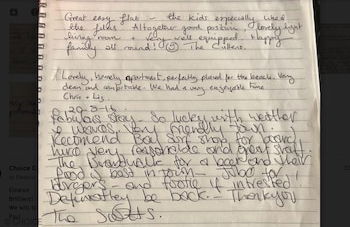 Great easy flat - the kids especially liked
the films. Altogether good position, lovely light
living room & very well equipped. Happy
family all round! The Cullens.
Lovely, homely apartment, perfectly placed for the beach. Very
clean and comfortable. We had a very enjoyable time
Chris + Lis
Fabulous stay. So lucky with weather
& waves. Very friendly town.
Recommend Surf shop for board
hire very reasonable and great staff.
The Boardwalk for a beer and their
food is best in town -
burgers - and footie if intrested!
Definitely be back. - Thankyou
The Scotts.